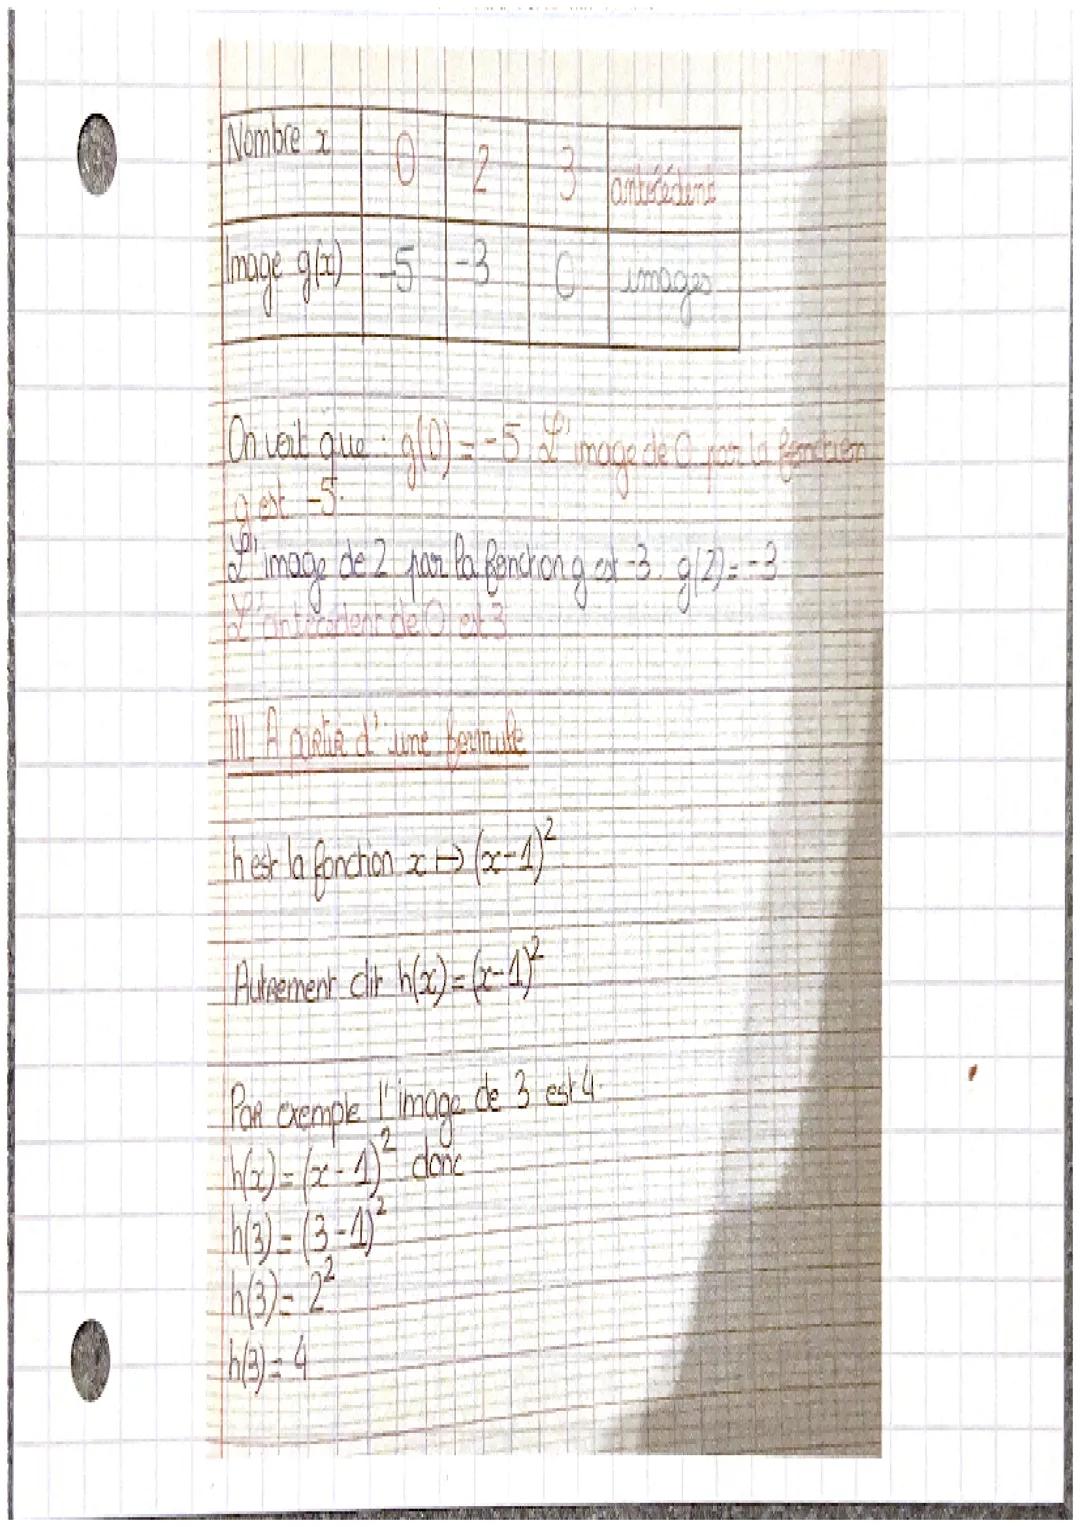 Nombre x 0 2 3 antécédent
Image g(x) -5 -3 0 images
On voit que : g(0) = -5. L'image de 0 par la fonction
g est -5.
L'image de 2 par la fonction g est -3. g(2) = -3
L'antécédent de 0 est 3
III. A partir d'une formule
h est la fonction x ↦ (x-1)²
Autrement dit h(x) = (x-1)²
Par exemple l'image de 3 est 4.
h(x) = (x-1)² donc
h(3) = (3-1)²
h(3) = 2²
h(3) = 4